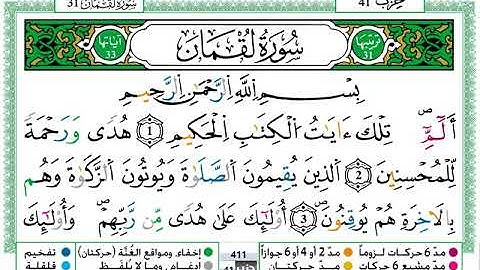 31 سورة لقمان
حزب 41
آياتها 33
سورة لقمان
ترتيبها 31
بِسْمِ ٱللَّهِ ٱلرَّحْمَٰنِ ٱلرَّحِيمِ
الٓمٓ 1 تِلْكَ ءَايَٰتُ ٱلْكِتَٰبِ ٱلْحَكِيمِ 2 هُدًى وَرَحْمَةً
لِّلْمُحْسِنِينَ 3 ٱلَّذِينَ يُقِيمُونَ ٱلصَّلَوٰةَ وَيُؤْتُونَ ٱلزَّكَوٰةَ وَهُم
بِٱلْءَاخِرَةِ هُمْ يُوقِنُونَ أُو۟لَٰٓئِكَ عَلَىٰ هُدًى مِّن رَّبِّهِمْ وَأُو۟لَٰٓئِكَ
مدّ 6 حركات لزوماً
مدّ 2 أو 4 أو 6 جوازاً
إخفاء، ومواقع الغُنَّة (حركتان)
تفخيم
مدّ مشبع 6 حركات
مدّ حركتان
إدغام، وما لا يُلفَظ
قلقلة
411